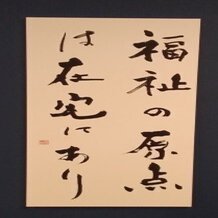 福祉の原点
は在宅にあり